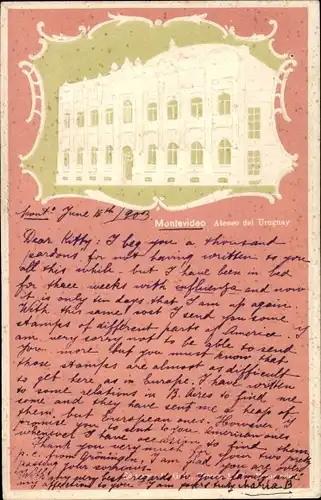 Montevideo Ateneo del Uruguay
Montº June 15th/903
Dear Kitty: I beg you a thousand
pardons for not having written to you
all this while but I have been in bed
for three weeks with influenza and now
it is only ten days that I am up again.
With this same post I send you some
stamps of different parts of America. I
am very sorry not to be able to send
you more, but you must know that
those stamps are almost as difficult
to get here as in Europe. I have written
to some relations in B. Aires to find me
some and they have sent me a heap of
them, but European ones. However, I
promise you to sent to you American ones
whenever I have occasion to find them
Thank you very much for your two
p.c. from Groningen. I am glad you
passing your
very best regards to your family and
my affection to you I am
Maria B.